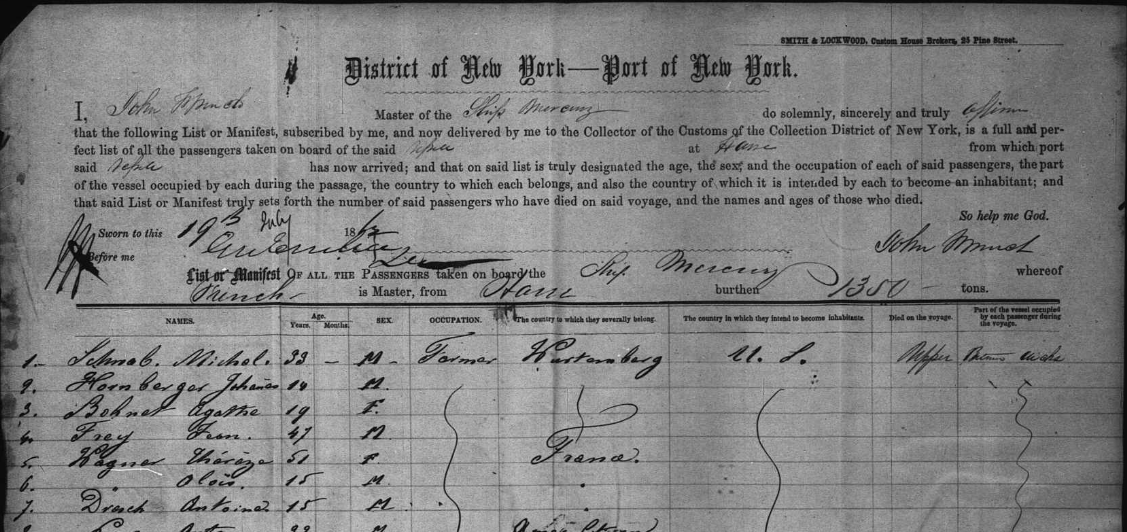 SMITH & LOCKWOOD, Custom House Brokers, 25 Pine Street.
District of New York—Port of New York.
I, John Master of the Ship Mercury do solemnly, sincerely and truly affirm
that the following List or Manifest, subscribed by me, and now delivered by me to the Collector of the Customs of the Collection District of New York, is a full and per-
fect list of all the passengers taken on board of the said at Havre from which port
said has now arrived; and that on said list is truly designated the age, the sex, and the occupation of each of said passengers, the part
of the vessel occupied by each during the passage, the country to which each belongs, and also the country of which it is intended by each to become an inhabitant; and
that said List or Manifest truly sets forth the number of said passengers who have died on said voyage, and the names and ages of those who died.
So help me God.
Sworn to this 19th July 186
Before me John
List or Manifest OF ALL THE PASSENGERS taken on board the Ship Mercury whereof
is Master, from Havre burthen 1350 tons.
NAMES. Age. Years. Months. SEX. OCCUPATION. The country to which they severally belong. The country in which they intend to become inhabitants. Died on the voyage. Part of the vessel occupied by each passenger during the voyage.
1. Schnab. Michel. 33 – M Farmer Wurtemberg U. S. Upper
2. Hornberger Johannes 14 M.
3. Bohnet Agathe 19 F.
4. Frey Jean. 47 M
5. Wagner Thérèze 51 F. France.
6. " Alois. 15 M "
7. Dresch Antoine 15 M